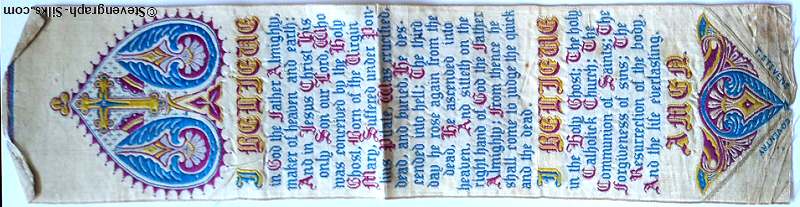 © Stevengraph-Silks.com
I BELIEVE
in God the Father Almighty,
maker of heaven and earth:
And in Jesus Christ His
only Son our Lord, Who
was conceived by the Holy
Ghost, Born of the Virgin
Mary, Suffered under Pon-
tius Pilate, Was crucified,
dead, and buried, He des-
cended into hell; The third
day he rose again from the
dead, He ascended into
heaven, And sitteth on the
right hand of God the Father
Almighty; From thence he
shall come to judge the quick
and the dead.
I BELIEVE
in the Holy Ghost; The holy
Catholick Church; The
Communion of Saints; The
Forgiveness of sins; The
Resurrection of the body,
And the life everlasting.
AMEN.
T. STEVENS
COVENTRY